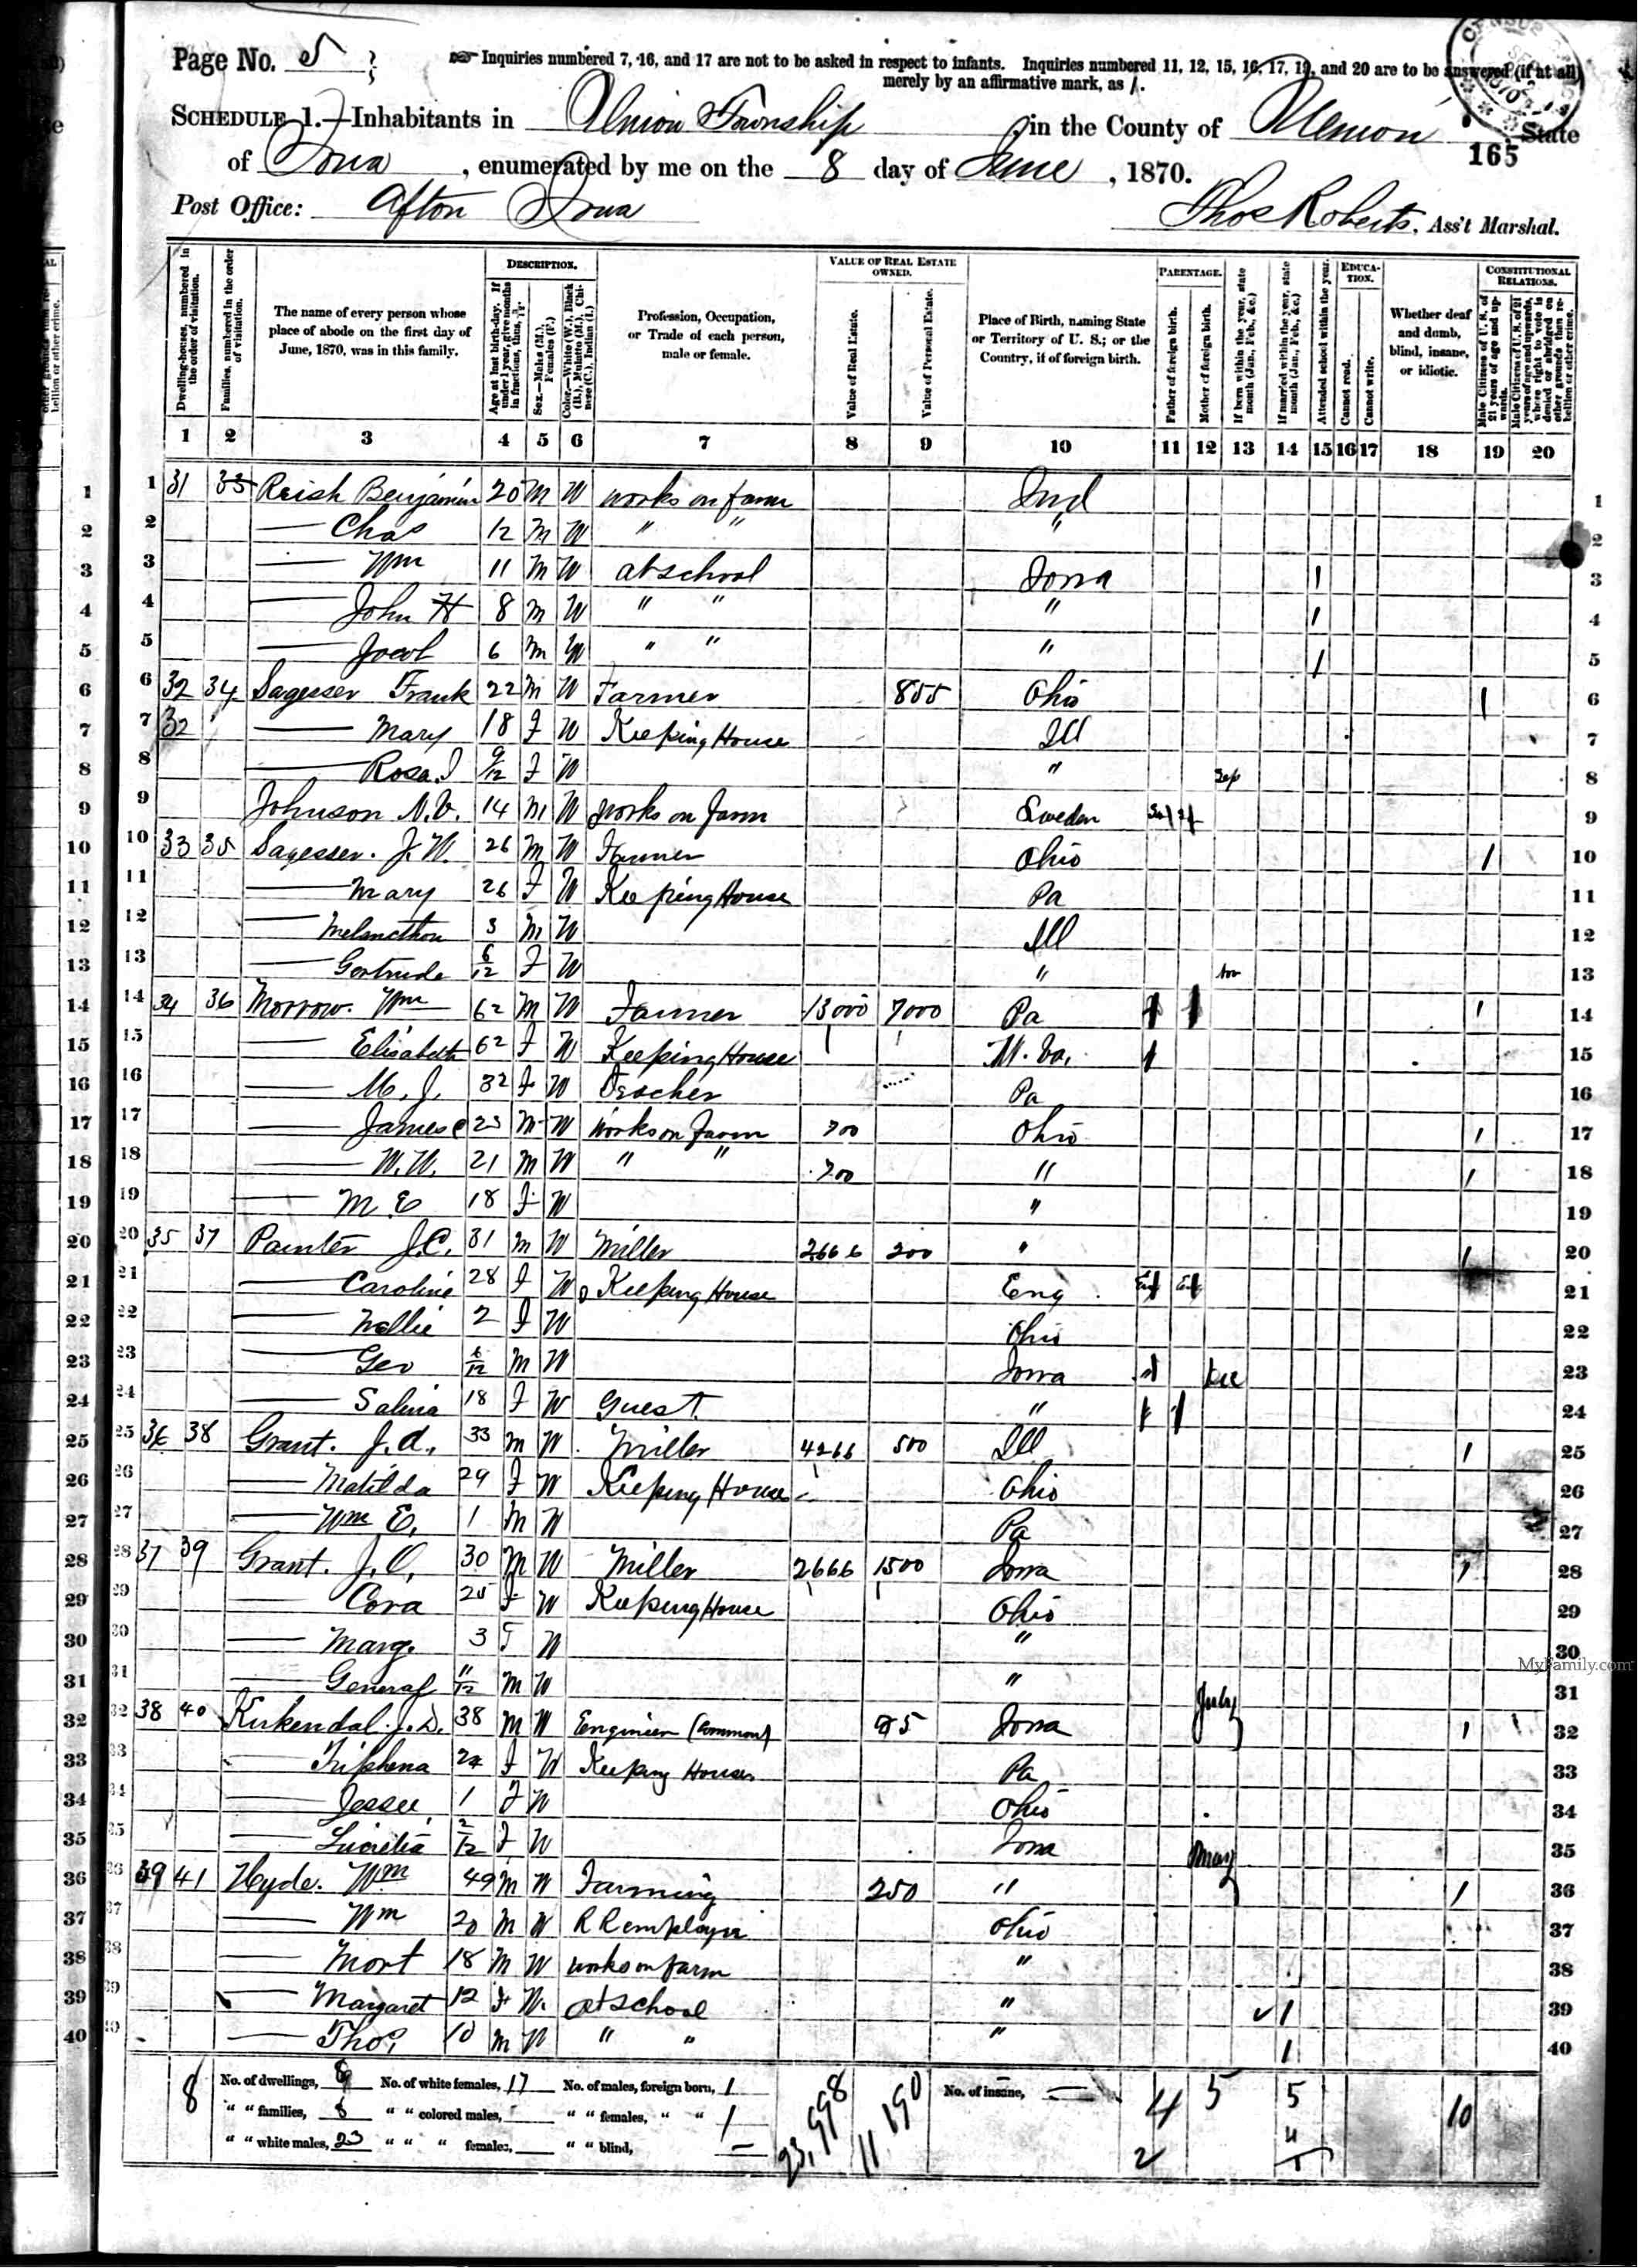 Page No. 5
Inquiries numbered 7, 16, and 17 are not to be asked in respect to infants. Inquiries numbered 11, 12, 15, 16, 17, 19, and 20 are to be answered (if at all)
merely by an affirmative mark, as /.
SCHEDULE 1.—Inhabitants in Union Township, in the County of Union, State
of Iowa, enumerated by me on the 8 day of June, 1870.
165
Post Office: Afton Iowa
Thos Roberts, Ass't Marshal.
Dwelling-houses, numbered in the order of visitation.
Families, numbered in the order of visitation.
The name of every person whose place of abode on the first day of June, 1870, was in this family.
DESCRIPTION.
Age at last birth-day. If under 1 year, give months in fractions, thus, 3/12.
Sex.—Males (M.), Females (F.)
Color.—White (W.), Black (B.), Mulatto (M.), Chinese (C.), Indian (I.)
Profession, Occupation, or Trade of each person, male or female.
VALUE OF REAL ESTATE OWNED.
Value of Real Estate.
Value of Personal Estate.
Place of Birth, naming State or Territory of U. S.; or the Country, if of foreign birth.
PARENTAGE.
Father of foreign birth.
Mother of foreign birth.
If born within the year, state month (Jan., Feb., &c.)
If married within the year, state month (Jan., Feb., &c.)
Attended school within the year.
EDUCATION.
Cannot read.
Cannot write.
Whether deaf and dumb, blind, insane, or idiotic.
CONSTITUTIONAL RELATIONS.
Male Citizens of U. S. of 21 years of age and upwards.
Male Citizens of U. S. of 21 years of age and upwards, where right to vote is denied or abridged on other grounds than rebellion or other crime.
1 2 3 4 5 6 7 8 9 10 11 12 13 14 15 16 17 18 19 20
1 31 33 Reish Benjamin 20 M W works on farm Ind 1
2 — Chas 12 M W " " " 2
3 — Wm 11 M W at school Iowa / 3
4 — John H 8 M W " " " / 4
5 — Jacob 6 M W " " " / 5
6 32 34 Sagesser Frank 22 M W Farmer 855 Ohio / 6
7 32 — Mary 18 F W Keeping House Ill 7
8 — Rosa I 9/12 F W " Sep 8
9 Johnson N.V. 14 M W works on farm Sweden 9
10 33 35 Sagesser. J.W. 26 M W Farmer Ohio / 10
11 — Mary 26 F W Keeping House Pa 11
12 — Melancthon 3 M W Ill 12
13 — Gertrude 6/12 F W " Nov 13
14 34 36 Morrow. Wm 62 M W Farmer 13000 7000 Pa / / / 14
15 — Elisabeth 62 F W Keeping House W. Va. / 15
16 — M. J. 32 F W Teacher Pa 16
17 — James C 23 M W works on Farm 700 Ohio / 17
18 — W.W. 21 M W " " 700 " / 18
19 — M E 18 F W " 19
20 35 37 Painter J.C. 31 M W Miller 2666 200 " / 20
21 — Caroline 28 F W Keeping House Eng 21
22 — Nellie 2 F W Ohio 22
23 — Geo 6/12 M W Iowa / Dec 23
24 — Salina 18 F W Guest. " / / 24
25 36 38 Grant. J.A. 33 M W Miller 4266 500 Ill / 25
26 — Matilda 29 F W Keeping House Ohio 26
27 — Wm E. 1 M W Pa 27
28 37 39 Grant. J.O. 30 M W Miller 2666 1500 Iowa / 28
29 — Cora 25 F W Keeping House Ohio 29
30 — Marg. 3 F W " 30
31 — General 11/12 M W " July 31
32 38 40 Kirkendal. J.D. 38 M W Engineer (Common) 75 Iowa / 32
33 — Triphena 24 F W Keeping House Pa 33
34 — Jessee 1 F W Ohio 34
35 — Lucretia 2/12 F W Iowa May 35
36 39 41 Hyde. Wm 49 M W Farming 250 " / 36
37 — Wm 20 M W R R employee Ohio 37
38 — Mort 18 M W works on farm " 38
39 — Margaret 12 F W at school " / 39
40 — Thos. 10 M W " " " / 40
8 No. of dwellings, 9 No. of white females, 17 No. of males, foreign born, 1 23,998 11,190 No. of insane, — 4 5 5 10
" " families, 8 " " colored males, " " females, " " 1
" " white males, 23 " " " females, " " blind, — 2
MyFamily.com